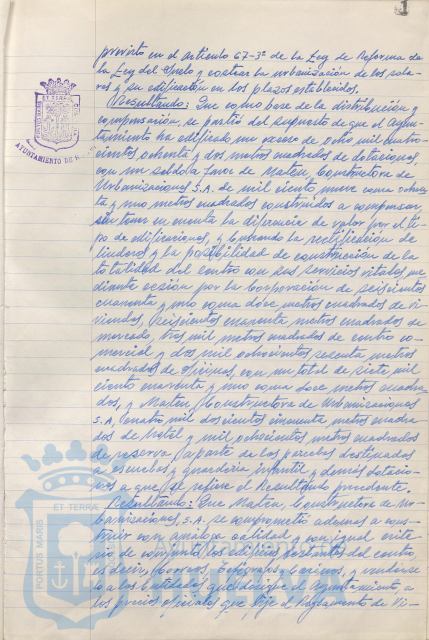 1
previsto en el artículo 67-3º de la Ley de Reforma de
la Ley del Suelo y costear la urbanización de los sola-
res y su edificación en los plazos establecidos.
Resultando: Que como base de la distribución y
compensación, se partió del supuesto de que el Ayun-
tamiento ha edificado un exceso de ocho mil cuatro-
cientos ochenta y dos metros cuadrados de dotaciones,
con un saldo a favor de Mateu, Constructora de
Urbanizaciones S.A. de mil ciento nueve coma ochen-
ta y uno metros cuadrados construidos a compensar
sin tener en cuenta la diferencia de valor por el ti-
po de edificaciones, y buscando la rectificación de
linderos y la posibilidad de construcción de la
totalidad del centro con sus servicios vitales, me-
diante cesión por la Corporación de seiscientos
cuarenta y uno coma doce metros cuadrados de vi-
viendas, seiscientos cuarenta metros cuadrados de
mercado, tres mil metros cuadrados de centro co-
mercial y dos mil ochocientos sesenta metros
cuadrados de oficinas, con un total de siete mil
ciento cuarenta y uno coma doce metros cuadra-
dos, y Mateu, Constructora de Urbanizaciones
S.A, cuatro mil doscientos cincuenta metros cuadra-
dos de hotel y mil ochocientos metros cuadrados
de reserva, aparte de las parcelas destinadas
a escuelas y guardería infantil y demás dotacio-
nes a que se refiere el Resultando precedente.
Resultando: Que Mateu, Constructora de Ur-
banizaciones, S.A. se comprometió además a cons-
truir con análoga calidad y con igual crite-
rio de conjunto los edificios restantes del centro,
es decir, Correos, Telégrafos y Casinos, y venderse-
lo a las Entidades que designe el Ayuntamiento, a
los precios oficiales que fije el Reglamento de Vi-
AYUNTAMIENTO DE
ET TERRA
PORTUS MARIS